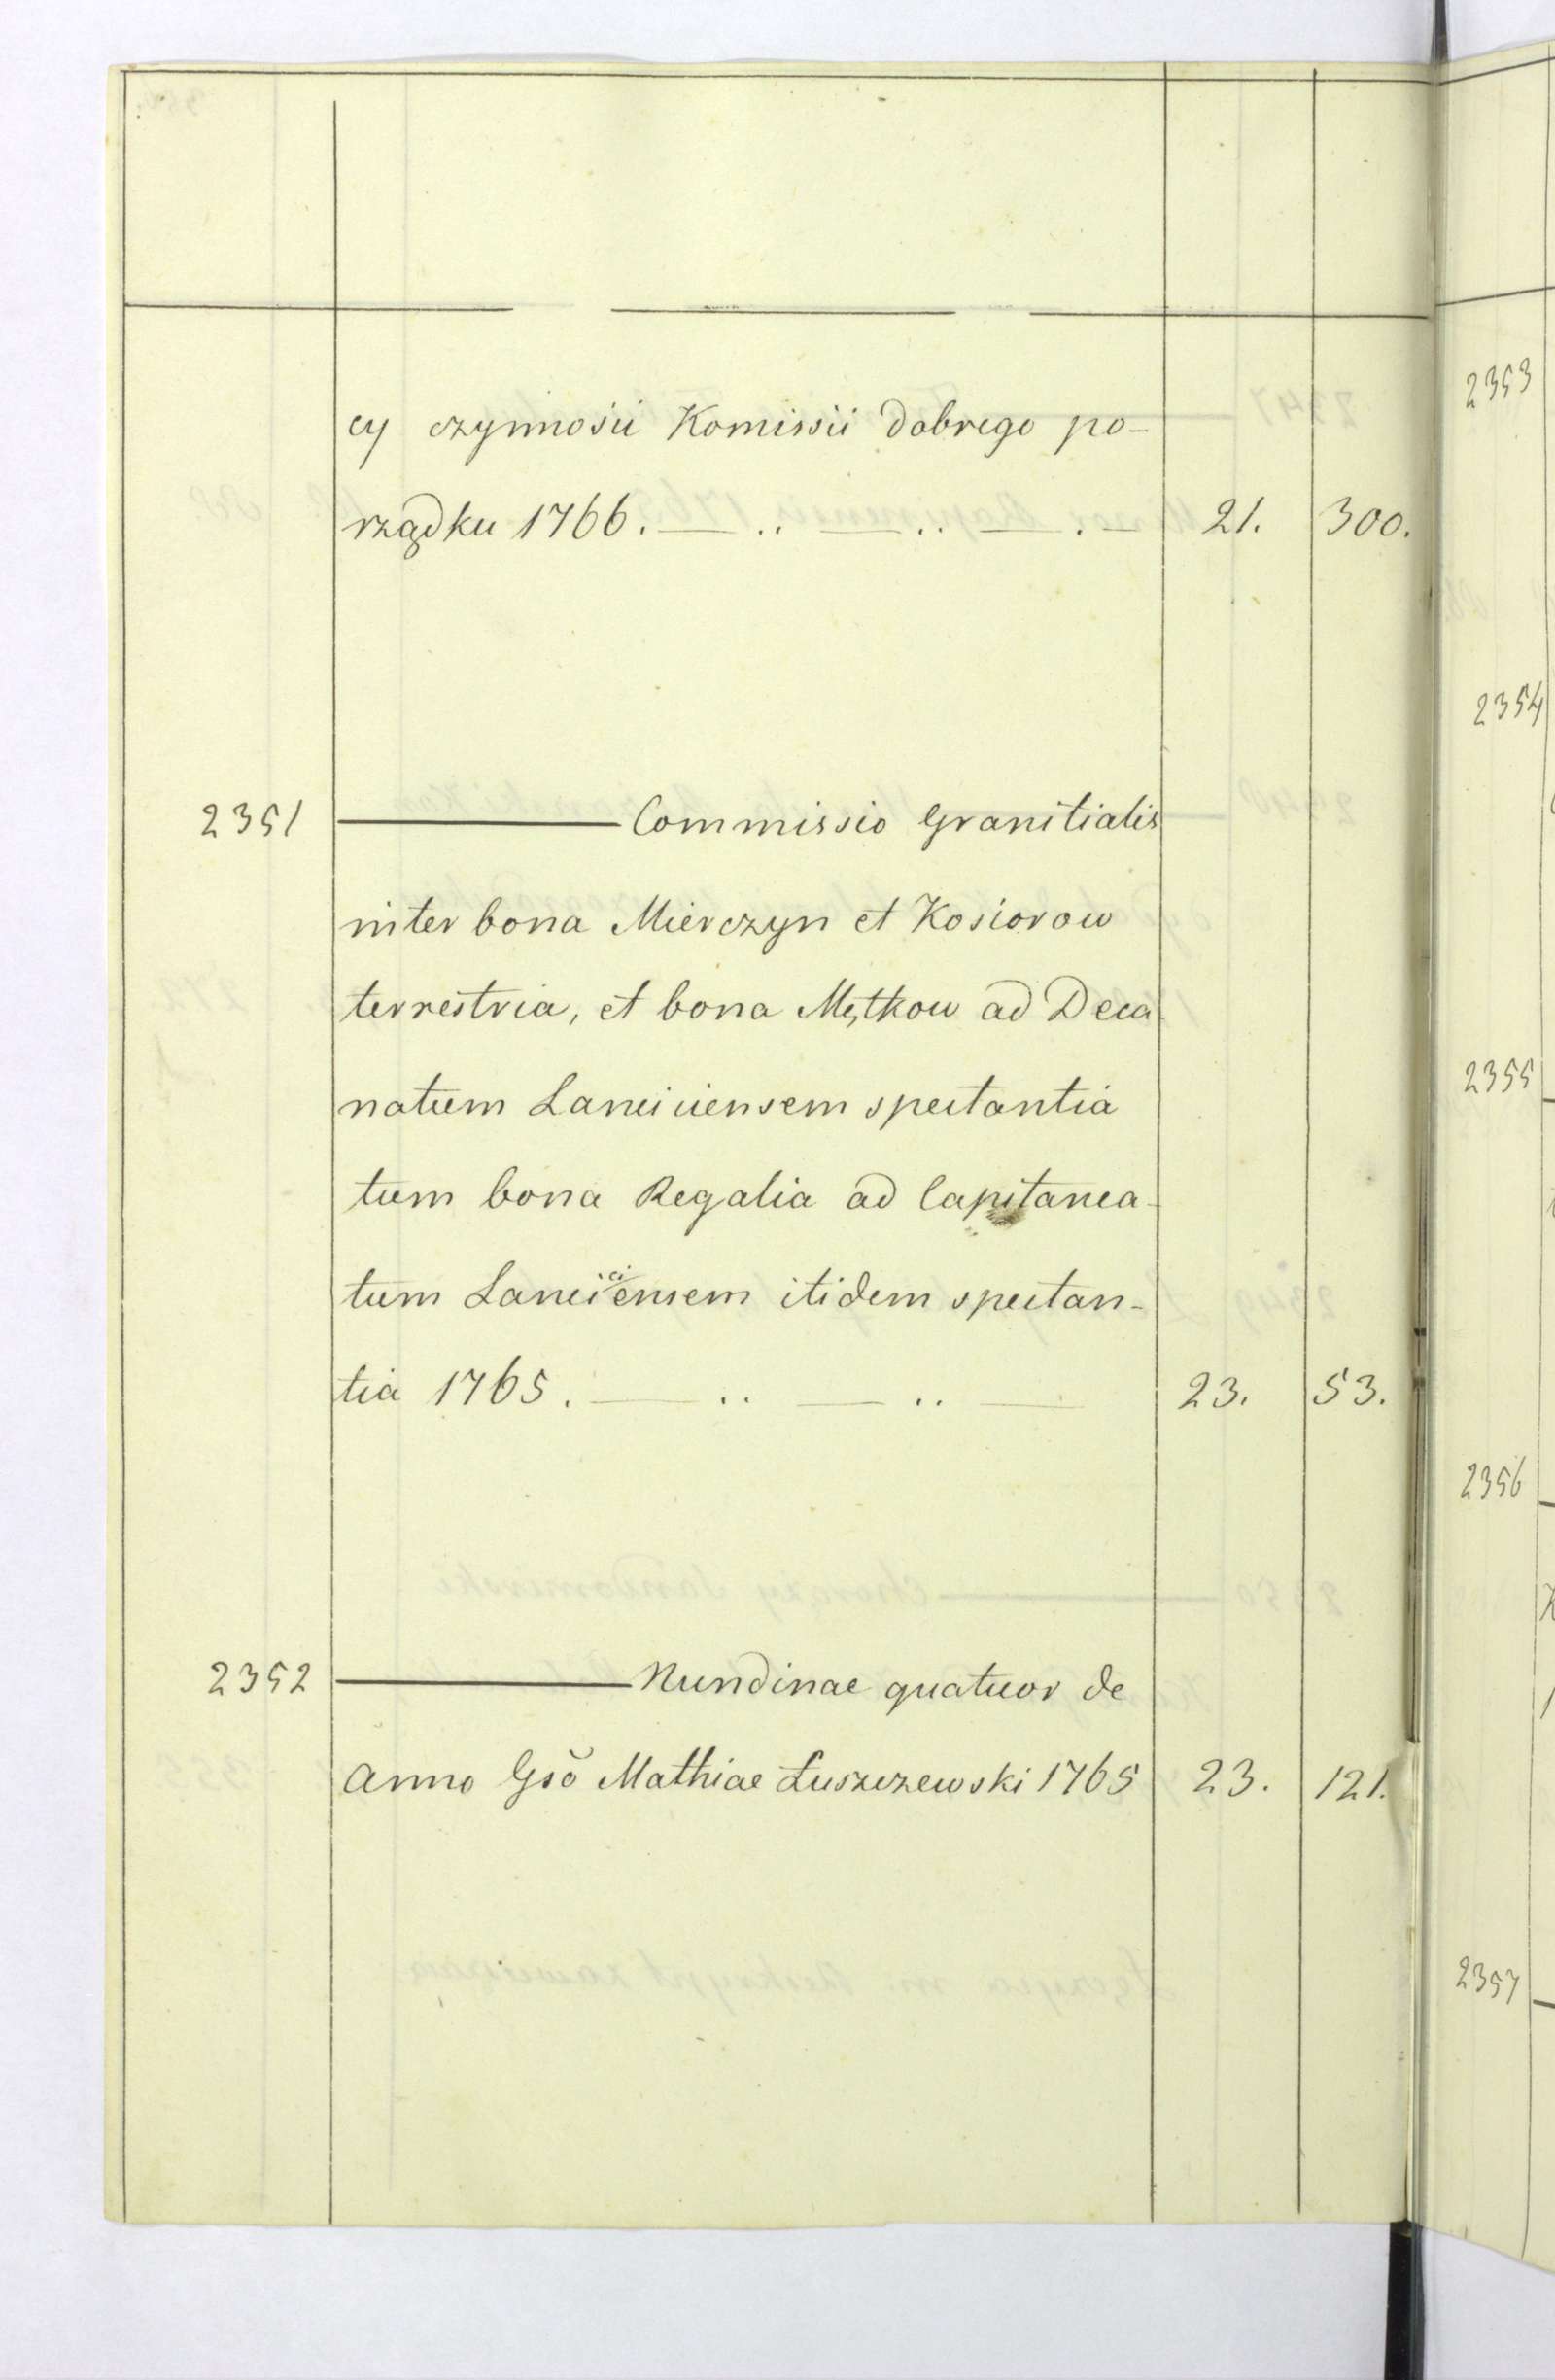 cy czynności Komissii dobrego po-
rządku 1766. — .. — .. — . — 21. 300.
2351 ——— Commissio Granitialis
inter bona Mierczyn et Kosiorow
terrestria, et bona Mętkow ad Deca-
natum Lanciciensem spectantia
tum bona Regalia ad Capitanea-
tum Lanciciensem itidem spectan-
tia 1765. — .. — .. — 23. 53.
2352 ——— Nundinae quatuor de
Anno Gsŏ Mathiae Łuszczewski 1765 23. 121.
2353
2354
2355
2356
2357